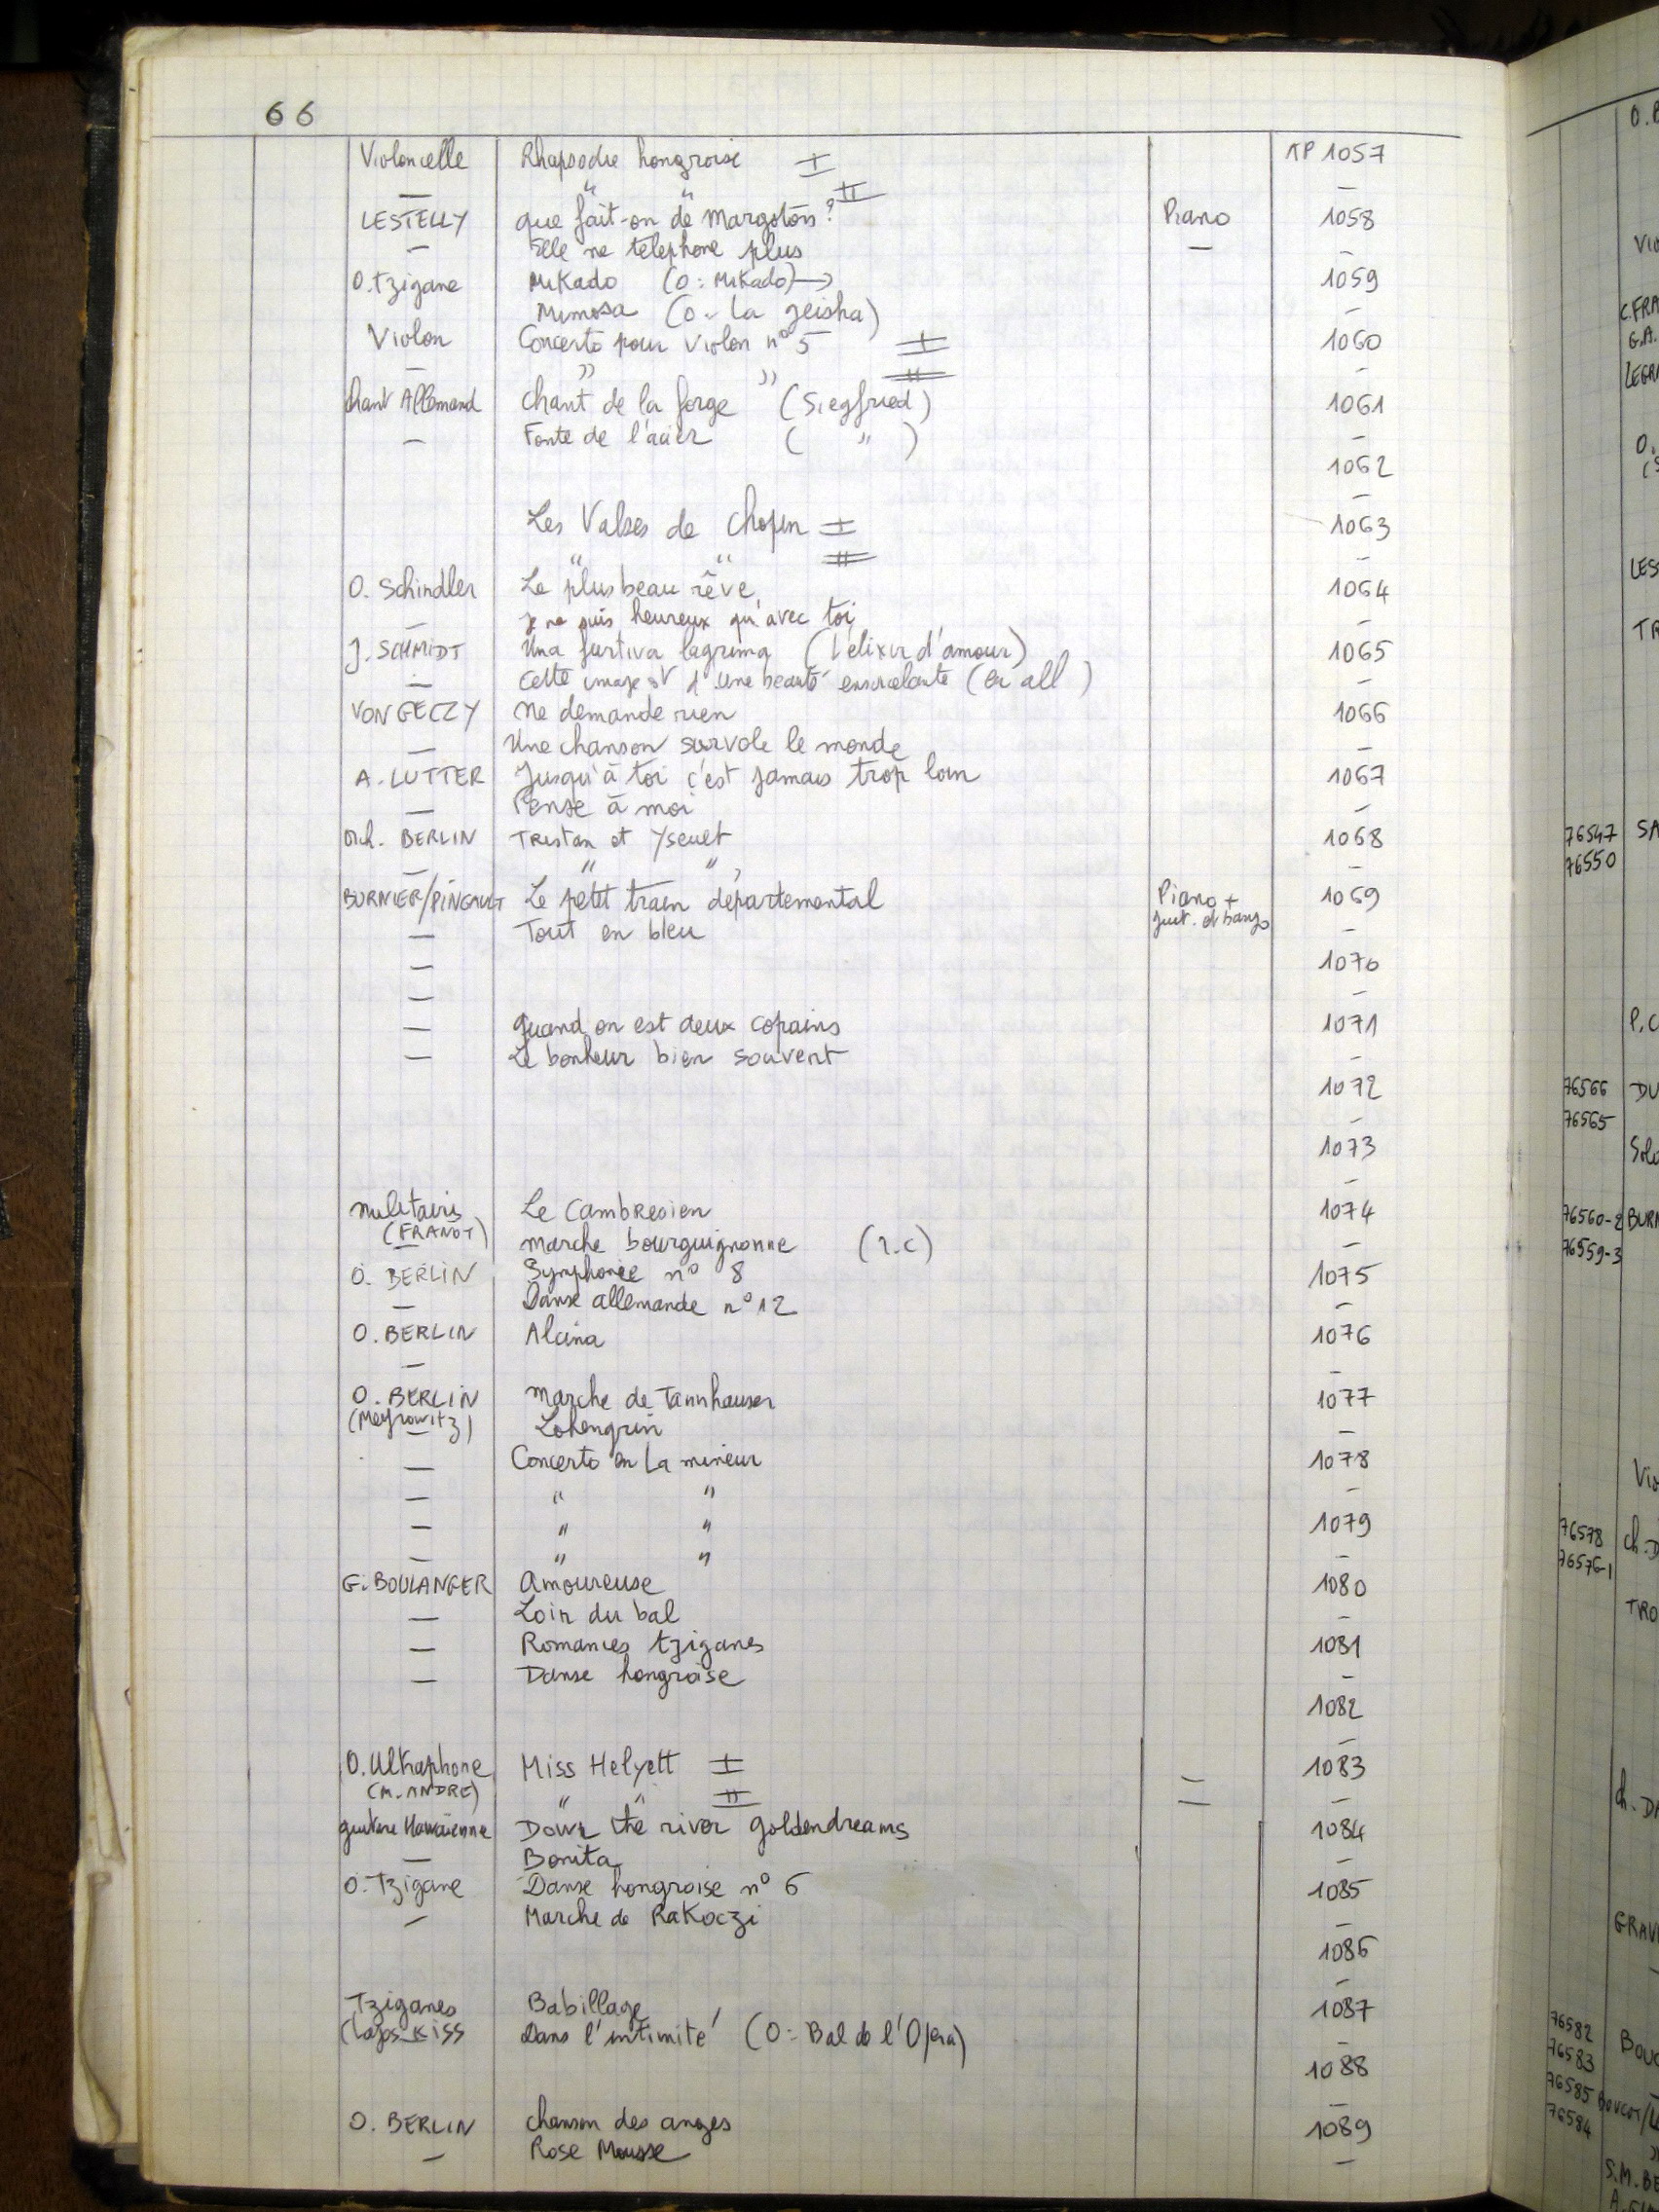 66
Violoncelle Rhapsodie hongroise I AP 1057
— " " II —
LESTELLY que fait-on de Margotons? Piano 1058
— Elle ne telephone plus — —
O.Tzigane Mikado (O: Mikado)→ 1059
Mimosa (O: La geisha) —
Violon Concerto pour Violon n° 5 I 1060
— " " II —
Chant Allemand Chant de la forge (Siegfried) 1061
— Fonte de l'acier ( " ) —
1062
—
Les Valses de Chopin I 1063
" " II —
O. Schindler Le plus beau rêve 1064
— Je ne suis heureux qu'avec toi —
J. SCHMIDT Una furtiva lagrima (L'élixir d'amour) 1065
— Cette image est d'une beauté ensorcelante (en all) —
VON GECZY Ne demande rien 1066
— Une chanson survole le monde —
A. LUTTER Jusqu'à toi c'est jamais trop loin 1067
— Pense à moi —
Orch. BERLIN Tristan et Yseult 1068
— " " —
BURNIER/PINGAULT Le petit train départemental Piano + 1069
— Tout en bleu guit. et banjo —
— 1070
— —
— Quand on est deux copains 1071
— Le bonheur bien souvent —
1072
—
1073
—
militaires Le Cambresien 1074
(FRANOT) marche bourguignonne (r.c) —
O. BERLIN Symphonie n° 8 1075
— Danse allemande n° 12 —
O. BERLIN Alcina 1076
— —
O. BERLIN marche de Tannhauser 1077
(Meyrowitz) Lohengrin —
— Concerto en La mineur 1078
— " " —
— " " 1079
— " " —
G. BOULANGER Amoureuse 1080
— Loin du bal —
— Romances tziganes 1081
— Danse hongroise —
1082
—
O. Ultraphone Miss Helyett I — 1083
(M. ANDRE) " " II — —
guitare Hawaïenne Down the river goldendreams 1084
— Bonita —
O. Tzigane Danse hongroise n° 6 1085
— Marche de Rakoczi —
1086
—
Tziganes Babillage 1087
(Lajos KISS Dans l'intimité (O: Bal de l'Opéra) —
1088
—
O. BERLIN chanson des anges 1089
— Rose Mousse —
76547 SA
76550
P.C
76566 DU
76565
76560-2 BURN
76559-3
76578 Ch. D
76576-1
TRO
Ch. DA
GRAV
76582
76583 BOUC
76585 BOUCOT/
76584
S.M. BE